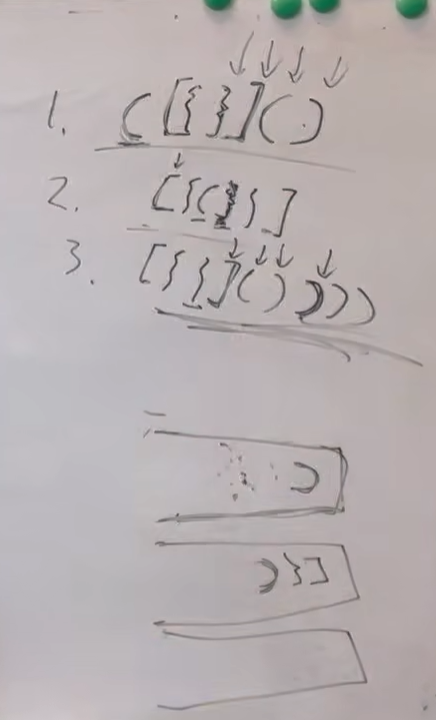 1. ([{}]()
2. [{(}}]
3. [{}]())))
(
({[